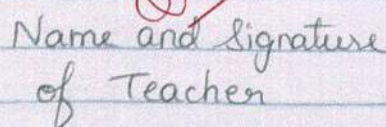 Name and Signature
of Teacher